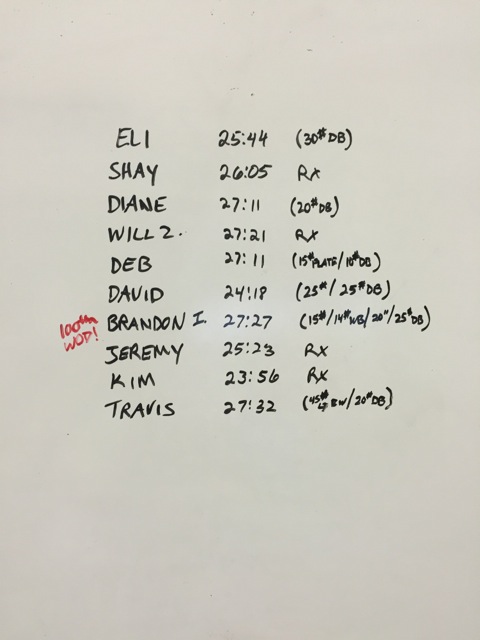 ELI 25:44 (30# DB)
SHAY 26:05 RX
DIANE 27:11 (20# DB)
WILL Z. 27:21 RX
DEB 27:11 (15# PLATE/10# DB)
DAVID 24:18 (25#/25# DB)
100th WOD! BRANDON I. 27:27 (15#/14# WB/20"/25# DB)
JEREMY 25:23 RX
KIM 23:56 RX
TRAVIS 27:32 (45# BW/20# DB)